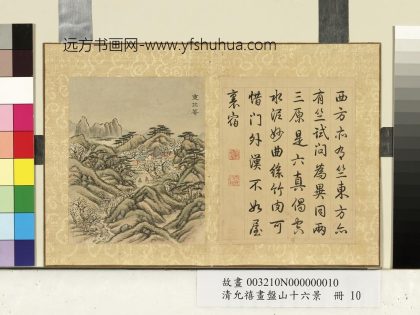 遠方书画网-www.yfshuhua.com
東竺菴
西方亦有竺東方亦
有竺試問為異同兩
三原是六真偈雲
水流妙曲絲竹肉可
惜門外漢不如屋
裏宿
故畫 003210N000000010
清允禧畫盤山十六景 冊 10